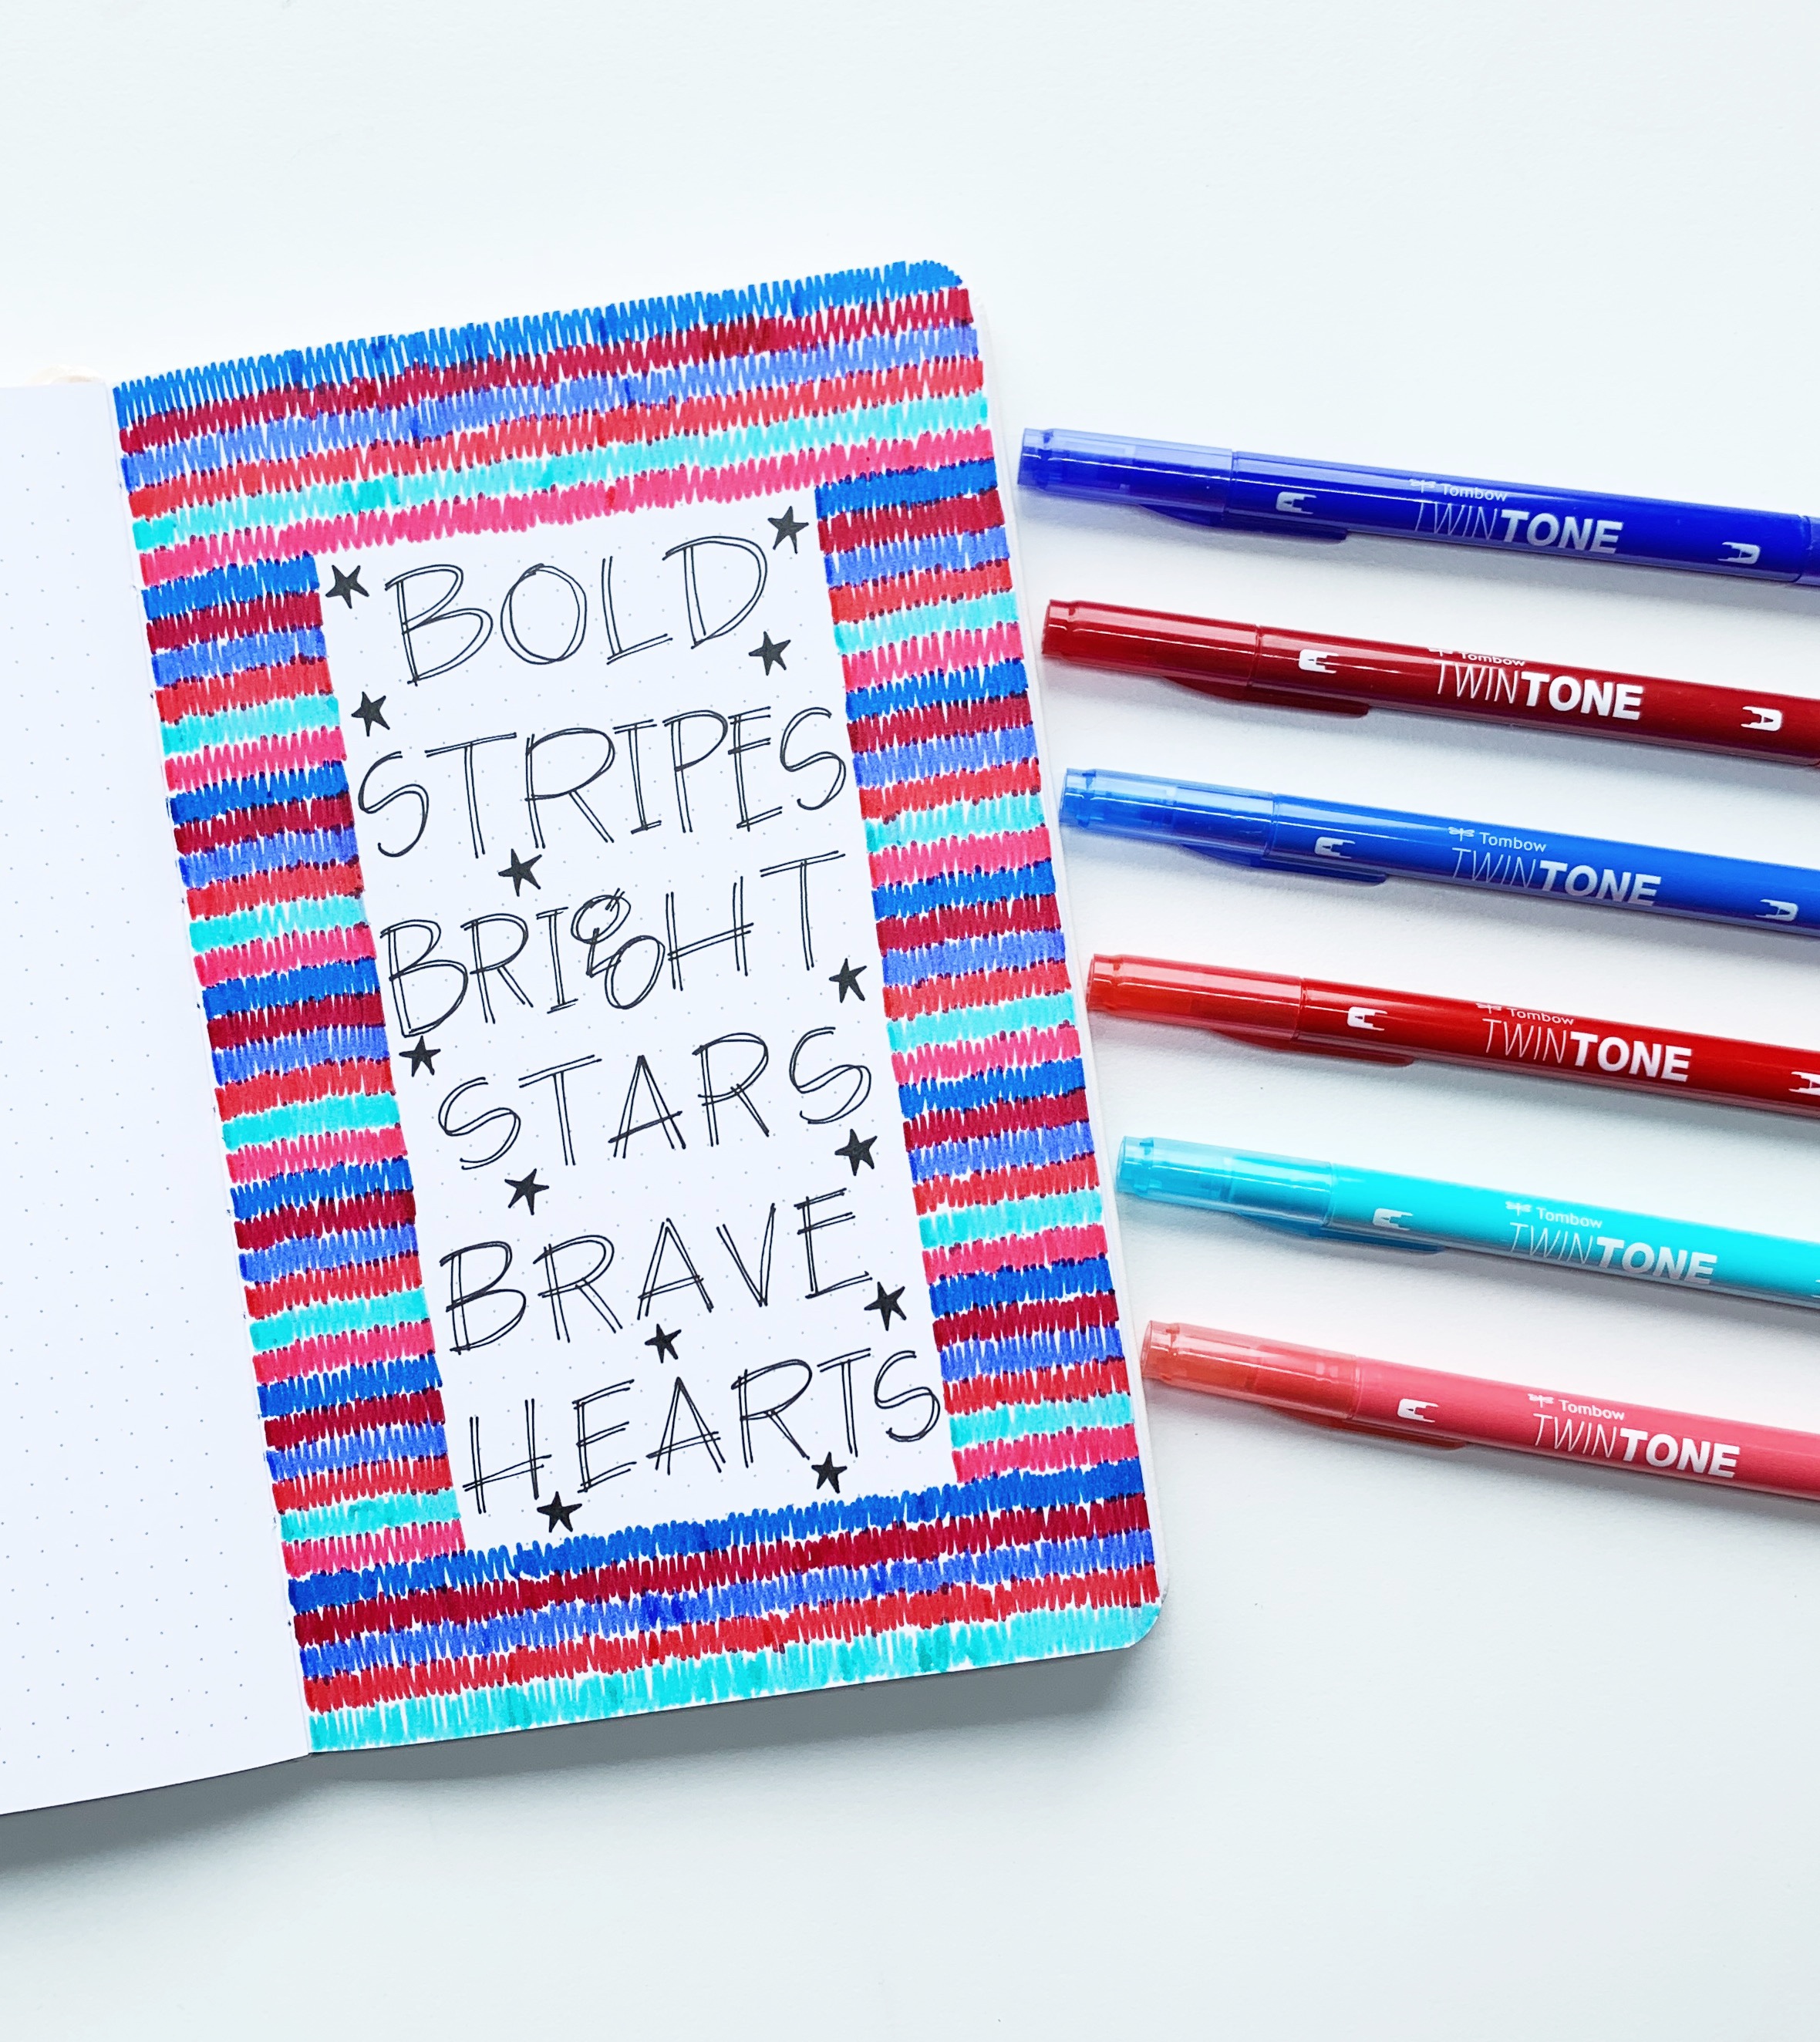 BOLD
STRIPES
BRIGHT
STARS
BRAVE
HEARTS
Tombow
TWINTONE
Tombow
TWINTONE
Tombow
TWINTONE
Tombow
TWINTONE
Tombow
TWINTONE
Tombow
TWINTONE